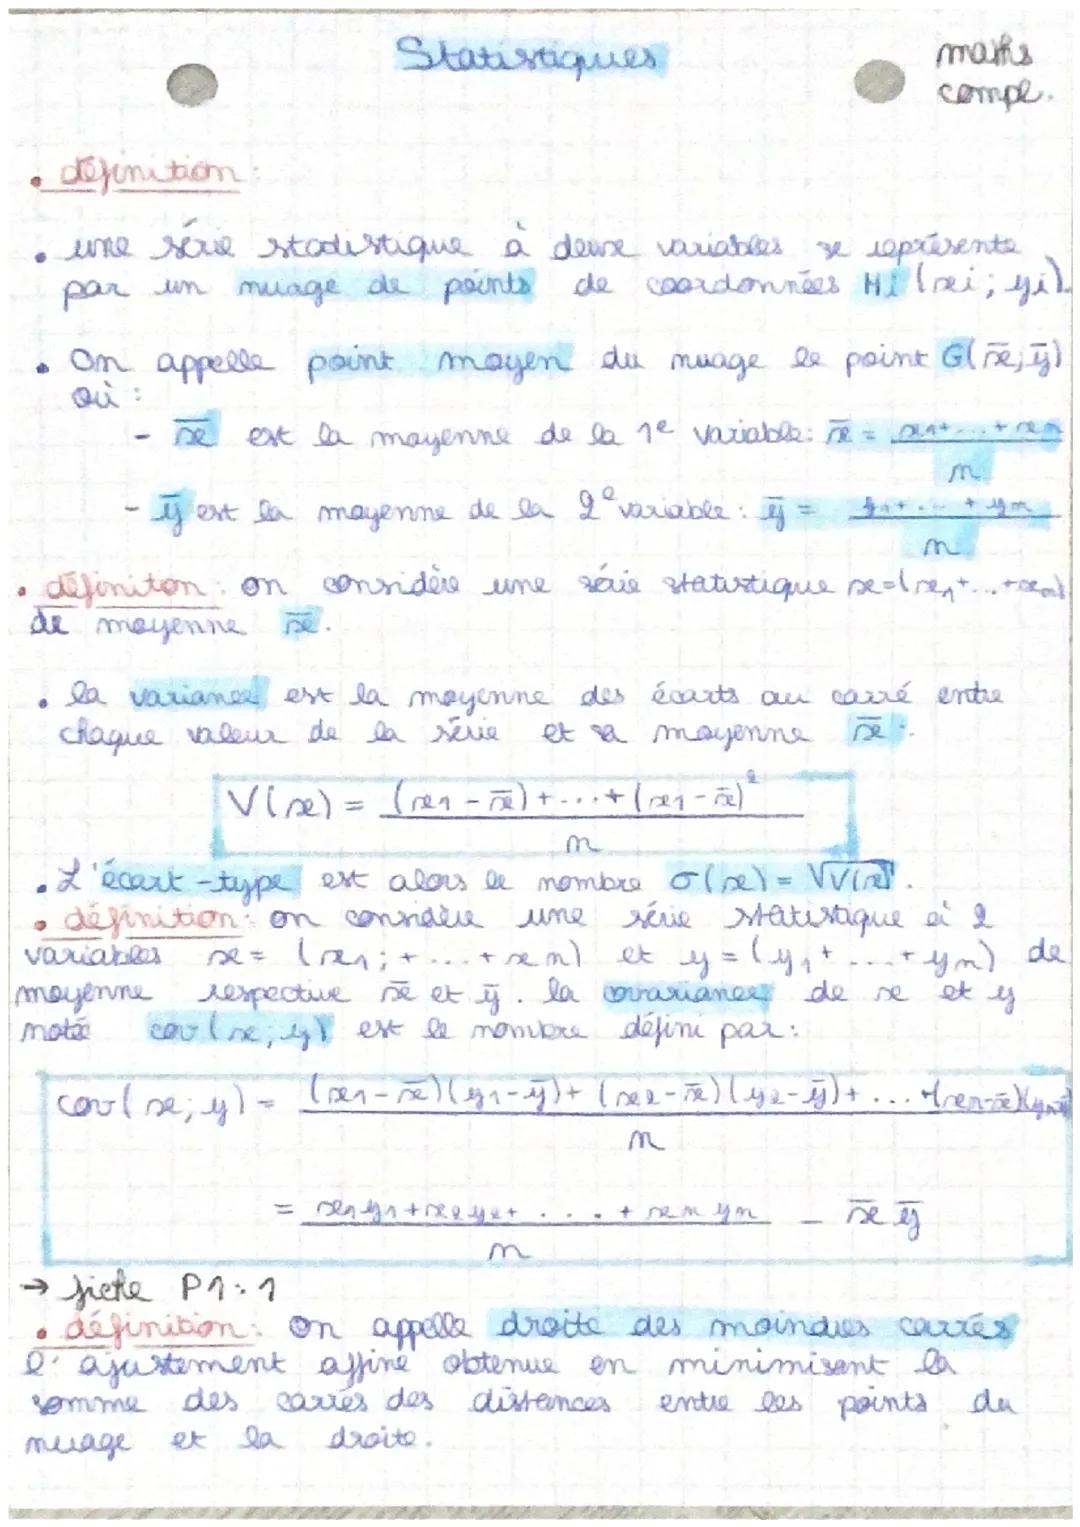 Statistiques
maths
compl.
• définition :
• une série statistique à deux variables se représente
par un nuage de points de coordonnées Mi (xi ; yi).
• On appelle point moyen du nuage le point G(x̄; ȳ)
où :
- x̄ est la moyenne de la 1e variable: x̄ = x1+...+xn
n
- ȳ est la moyenne de la 2e variable : ȳ = y1+...+yn
n
• définiton : on considère une série statistique x=(x1+...+xn)
de moyenne x̄.
• la variance est la moyenne des écarts au carré entre
chaque valeur de la série et sa moyenne x̄ :
V(x) = (x1 - x̄)+...+(x1-x̄)²
n
• L'écart-type est alors le nombre σ(x) = √V(x).
• définition : on considère une série statistique à 2
variables x= (x1;+...+xn) et y=(y1+...+yn) de
moyenne respective x̄ et ȳ. la covariance de x et y
noté cov(x; y) est le nombre défini par :
cov(x; y) = (x1-x̄)(y1-ȳ)+(x2-x̄)(y2-ȳ)+...+(xn-x̄)(yn-ȳ)
n
= x1y1+x2y2+....+xnyn - x̄ȳ
n
→ fiche P1:1
• définition : On appelle droite des moindres carrés
l'ajustement affine obtenue en minimisent la
somme des carrés des distances entre les points du
nuage et la droite.